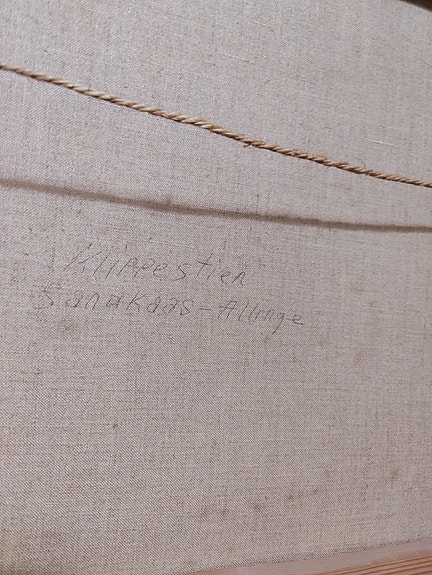 Klippestien
Sandkaas-Allinge